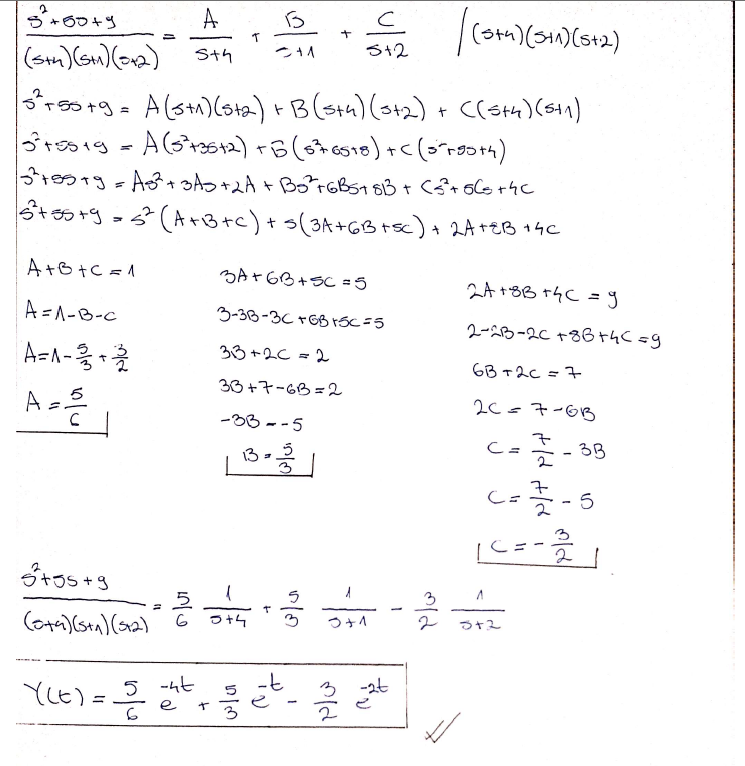 s²+5s+9 / (s+4)(s+1)(s+2) = A / s+4 + B / s+1 + C / s+2 / (s+4)(s+1)(s+2)
s²+5s+9 = A(s+1)(s+2) + B(s+4)(s+2) + C(s+4)(s+1)
s²+5s+9 = A(s²+3s+2) + B(s²+6s+8) + C(s²+5s+4)
s²+5s+9 = As²+3As+2A + Bs²+6Bs+8B + Cs²+5Cs+4C
s²+5s+9 = s²(A+B+C) + s(3A+6B+5C) + 2A+8B+4C
A+B+C=1
A=1-B-C
A=1-5/3+3/2
A=5/6
3A+6B+5C=5
3-3B-3C+6B+5C=5
3B+2C=2
3B+7-6B=2
-3B=-5
B=5/3
2A+8B+4C=9
2-2B-2C+8B+4C=9
6B+2C=7
2C=7-6B
C=7/2-3B
C=7/2-5
C=-3/2
s²+5s+9 / (s+4)(s+1)(s+2) = 5/6 1/s+4 + 5/3 1/s+1 - 3/2 1/s+2
Y(t) = 5/6 e^-4t + 5/3 e^-t - 3/2 e^-2t